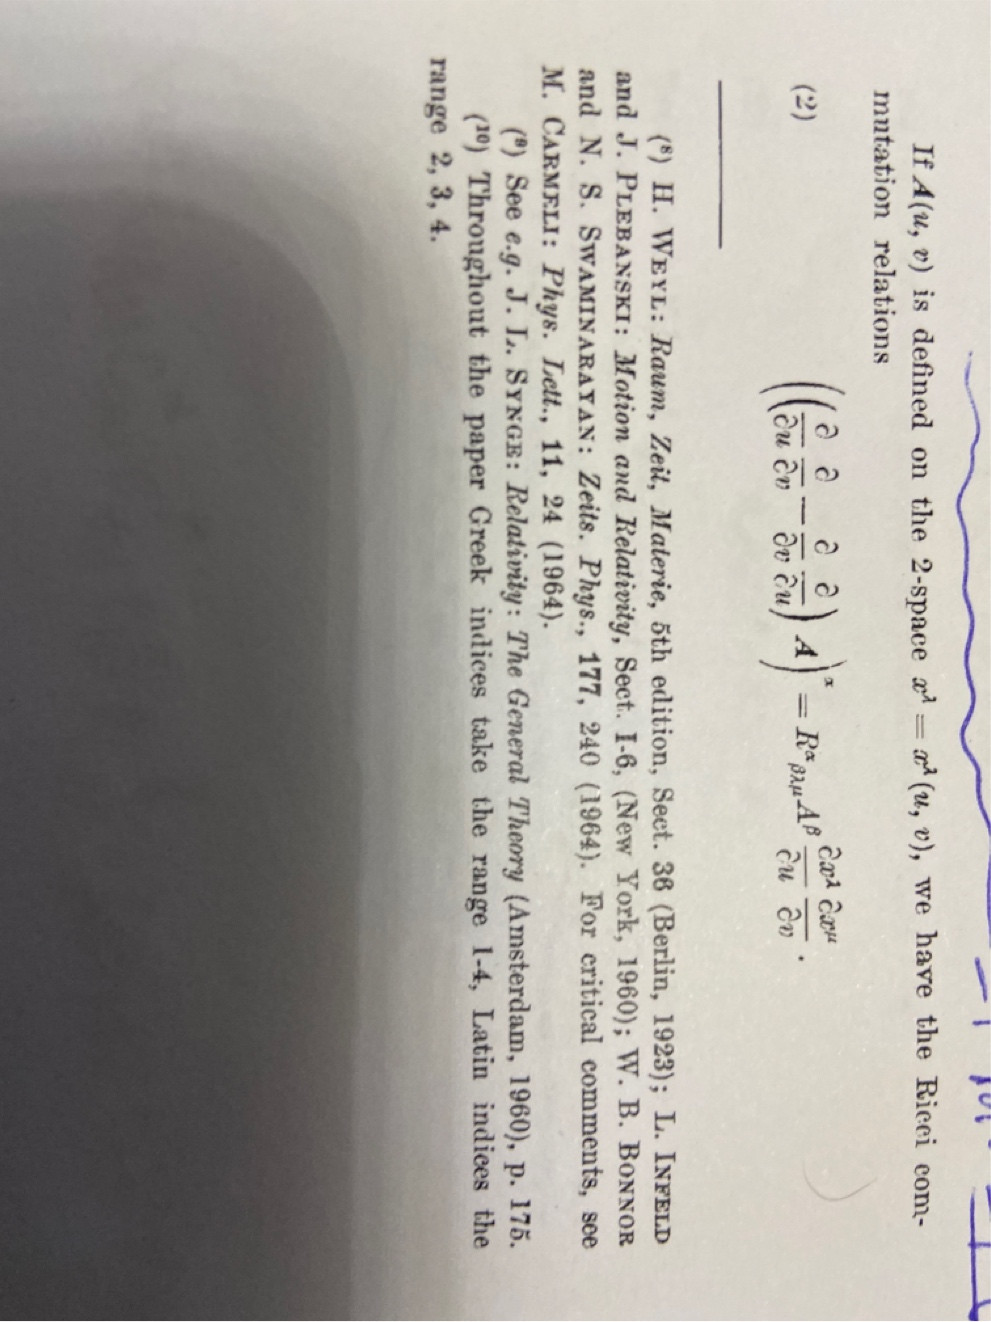 If A(u, v) is defined on the 2-space xλ = xλ(u, v), we have the Ricci com-
mutation relations
(2) ((∂/∂u ∂/∂v − ∂/∂v ∂/∂u) A)^α = R^α_βλμ A^β ∂x^λ/∂u ∂x^μ/∂v .
(⁸) H. WEYL: Raum, Zeit, Materie, 5th edition, Sect. 36 (Berlin, 1923); L. INFELD
and J. PLEBANSKI: Motion and Relativity, Sect. I-6, (New York, 1960); W. B. BONNOR
and N. S. SWAMINARAYAN: Zeits. Phys., 177, 240 (1964). For critical comments, see
M. CARMELI: Phys. Lett., 11, 24 (1964).
(⁹) See e.g. J. L. SYNGE: Relativity: The General Theory (Amsterdam, 1960), p. 175.
(¹⁰) Throughout the paper Greek indices take the range 1-4, Latin indices the
range 2, 3, 4.